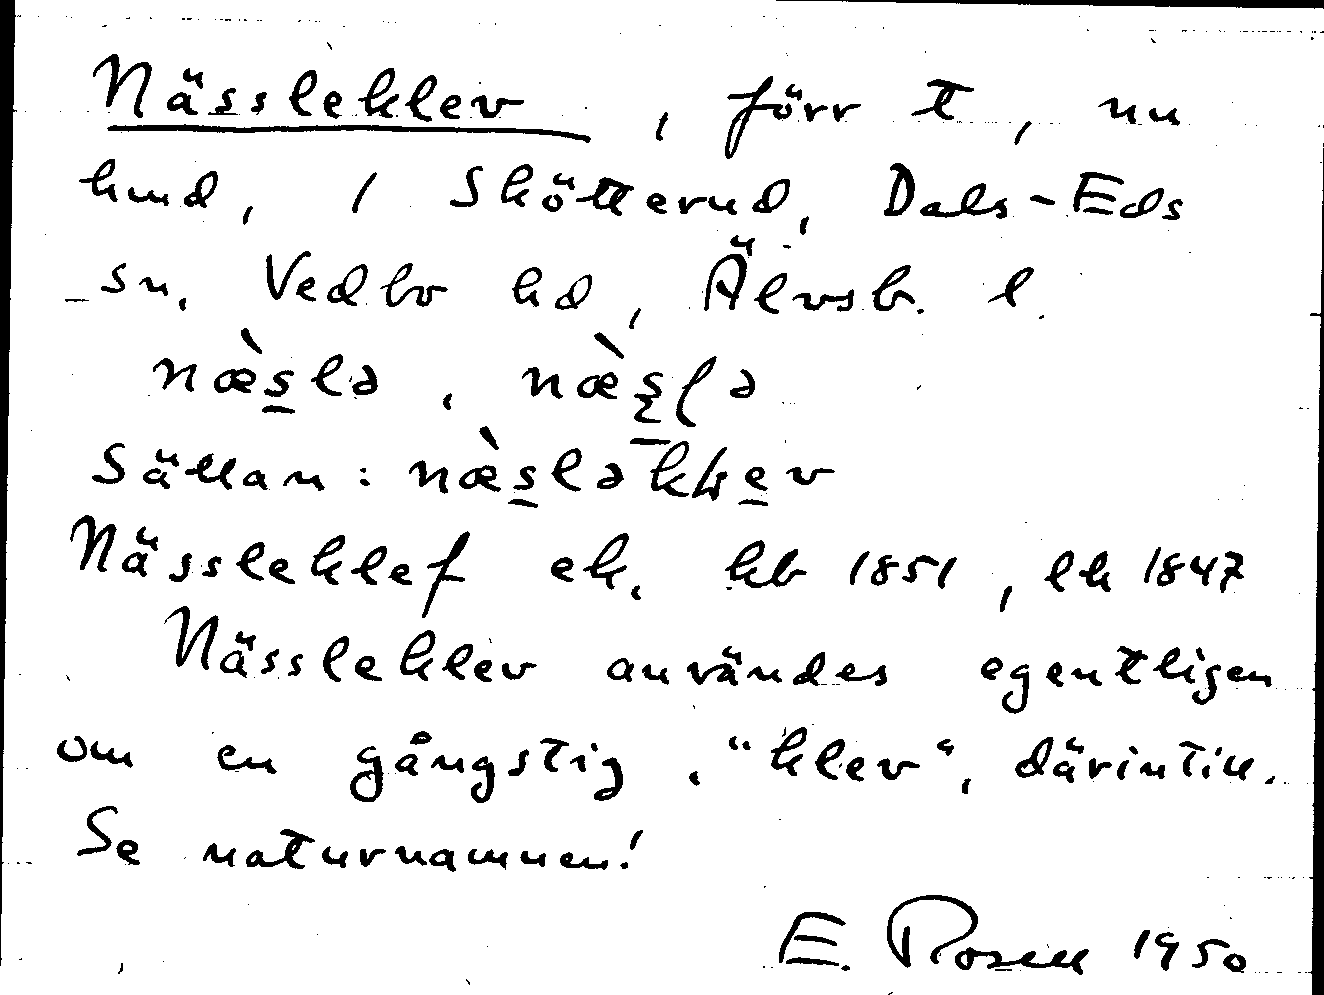 Nässleklev, förr t, nu
hmd, i Skötterud, Dals-Eds
sn, Vedbo hd, Älvsb. l.
næ̀s̱lə, næ̀ṣḷə
Sällan: næ̀s̱ləkḷe̱v
Nässleklef ek. kb 1851, lk 1847
Nässleklev användes egentligen
om en gångstig, "klev", därintill.
Se naturnamnen!
E. Rosell 1950